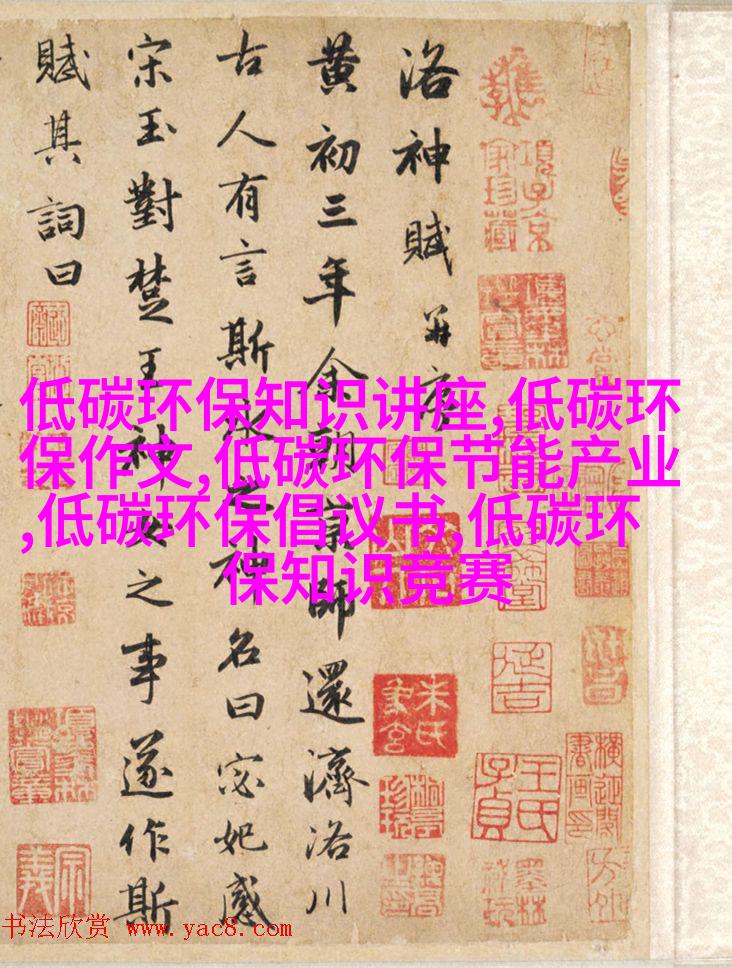 洛神賦并序
黄初三年余朝京師還濟洛川
古人有言斯水之神名曰宓妃感
宋玉對楚王神女之事遂作斯
賦其詞曰
低碳环保知识讲座,低碳环
保作文,低碳环保节能产业
,低碳环保倡议书,低碳环
保知识竞赛
項子京家珍藏
书法欣赏 www.yac8.com